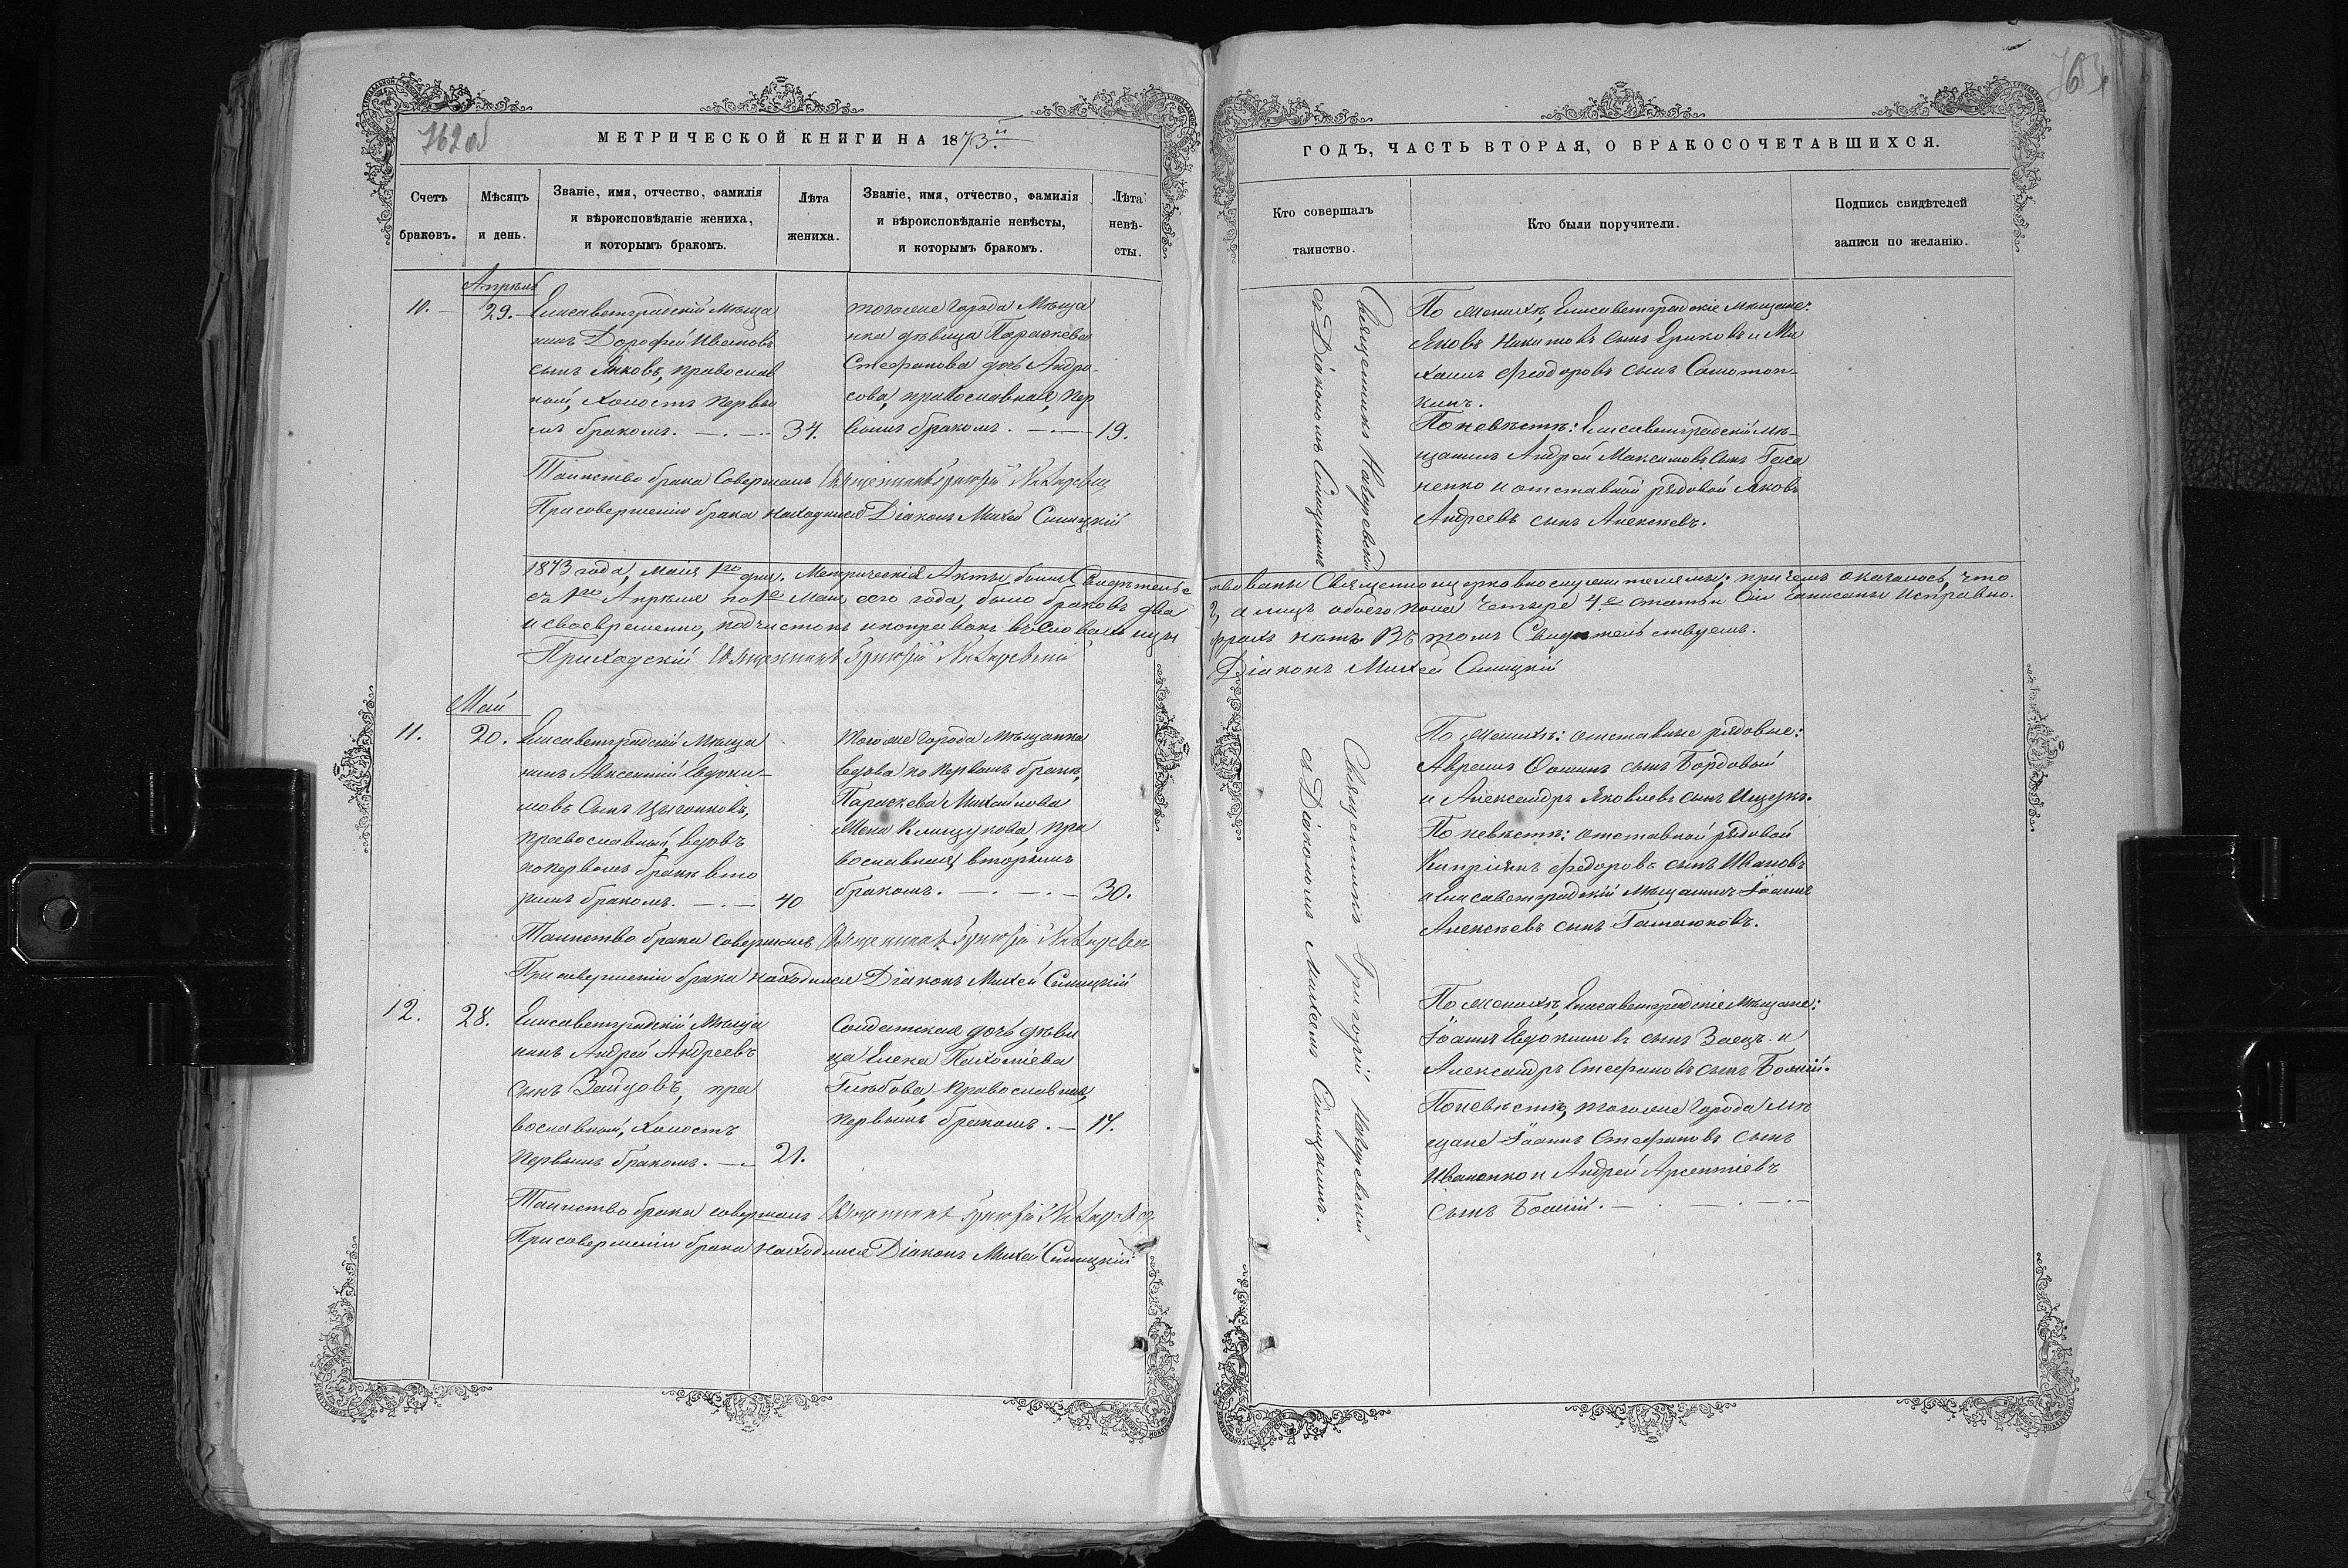 762 об
МЕТРИЧЕСКОЙ КНИГИ НА 1873й
Счетъ
браковъ.
Мѣсяцъ
и день.
Званіе, имя, отчество, фамилія
и вѣроисповѣданіе жениха,
и которымъ бракомъ.
Лѣта
жениха.
Званіе, имя, отчество, фамилія
и вѣроисповѣданіе невѣсты,
и которымъ бракомъ.
Лѣта
невѣ-
сты.
Апрѣль
10. 29.
Елисаветградскій Мѣща
нинъ Дорофей Ивановъ
сынъ Яковъ, православ
ный, холостъ первы
мъ бракомъ. 34.
тогоже города Мѣща
нка дѣвица Параскева
Стефанова дочь Андро-
сова, православная, пер
вымъ бракомъ. 19.
Таинство брака Совершалъ Священникъ Григорій
При совершеніи брака находился Діаконъ Михей Синицкій
1873 года, Маія 1го дня. Метрическія Акты были Свидѣтельс
съ 1го Апрѣля по 1е Маія сего года, было браковъ два
и своевременно, подчистокъ и поправокъ въ словахъ и ци
Приходскій Священникъ Григорій
Май
11. 20.
Елисаветградскій Мѣща
нинъ Авксентій Евдоки-
мовъ Сынъ Цыганковъ,
православный, вдовъ
по первомъ бракѣ вто
рымъ бракомъ. 40
тогоже города Мѣщанка
вдова по первомъ бракѣ,
Параскева Михайлова
Жена Клищукова, пра
вославная, вторымъ
бракомъ. 30.
Таинство брака совершалъ Священникъ Григорій
При совершеніи брака находился Діаконъ Михей Синицкій
12. 28.
Елисаветградскій Мѣща
нинъ Андрей Андреевъ
сынъ Зайцовъ, пра
вославный, холостъ
первымъ бракомъ. 21.
Солдатская дочь дѣви
ца Елена Пахоміева
Глѣбова, православная,
первымъ бракомъ. 17.
Таинство брака совершалъ Священникъ Григорій
При совершеніи брака находился Діаконъ Михей Синицкій
763
ГОДЪ, ЧАСТЬ ВТОРАЯ, О БРАКОСОЧЕТАВШИХСЯ.
Кто совершалъ
таинство.
Кто были поручители.
Подпись свидѣтелей
записи по желанію.
Священникъ
съ Діакономъ Синицкимъ
По женихѣ, Елисаветградскіе Мѣщане:
Яковъ Никитовъ сынъ Ериковъ и Ми
хаилъ Феодоровъ сынъ Самотоп-
кинъ.
По невѣстѣ: Елисаветградскій мѣ-
щанинъ Андрей Максимовъ сынъ Гаса
ненко и отставной рядовой Яковъ
Андреевъ сынъ Алексѣевъ.
твованы Священноцерковнослужителями; при чемъ оказалось, что
2, а лицъ обоего пола четыре 4. е статьи сіи записаны исправно.
фрахъ нѣтъ Въ томъ Свидѣтельствуемъ.
Діаконъ Михей Синицкій
Священникъ Григорій
съ Діакономъ Михеемъ Синицкимъ.
По женихѣ: отставные рядовые:
Авремъ Фоминъ сынъ Бордовый
и Александръ Яковлевъ сынъ Ищукъ.
По невѣстѣ: отставной рядовой
Кипріянъ Федоровъ сынъ Ивановъ
и Елисаветградскій Мѣщанинъ Іоаннъ
Алексѣевъ сынъ Гаталюковъ.
По женихѣ, Елисаветградскіе Мѣщане:
Іоаннъ Евдокимовъ сынъ Заецъ и
Александръ Стефановъ сынъ Божій.
По невѣстѣ, тогоже города мѣ
щане Іоаннъ Стефановъ сынъ
Иваненко и Андрей Арсентіевъ
сынъ Божій.